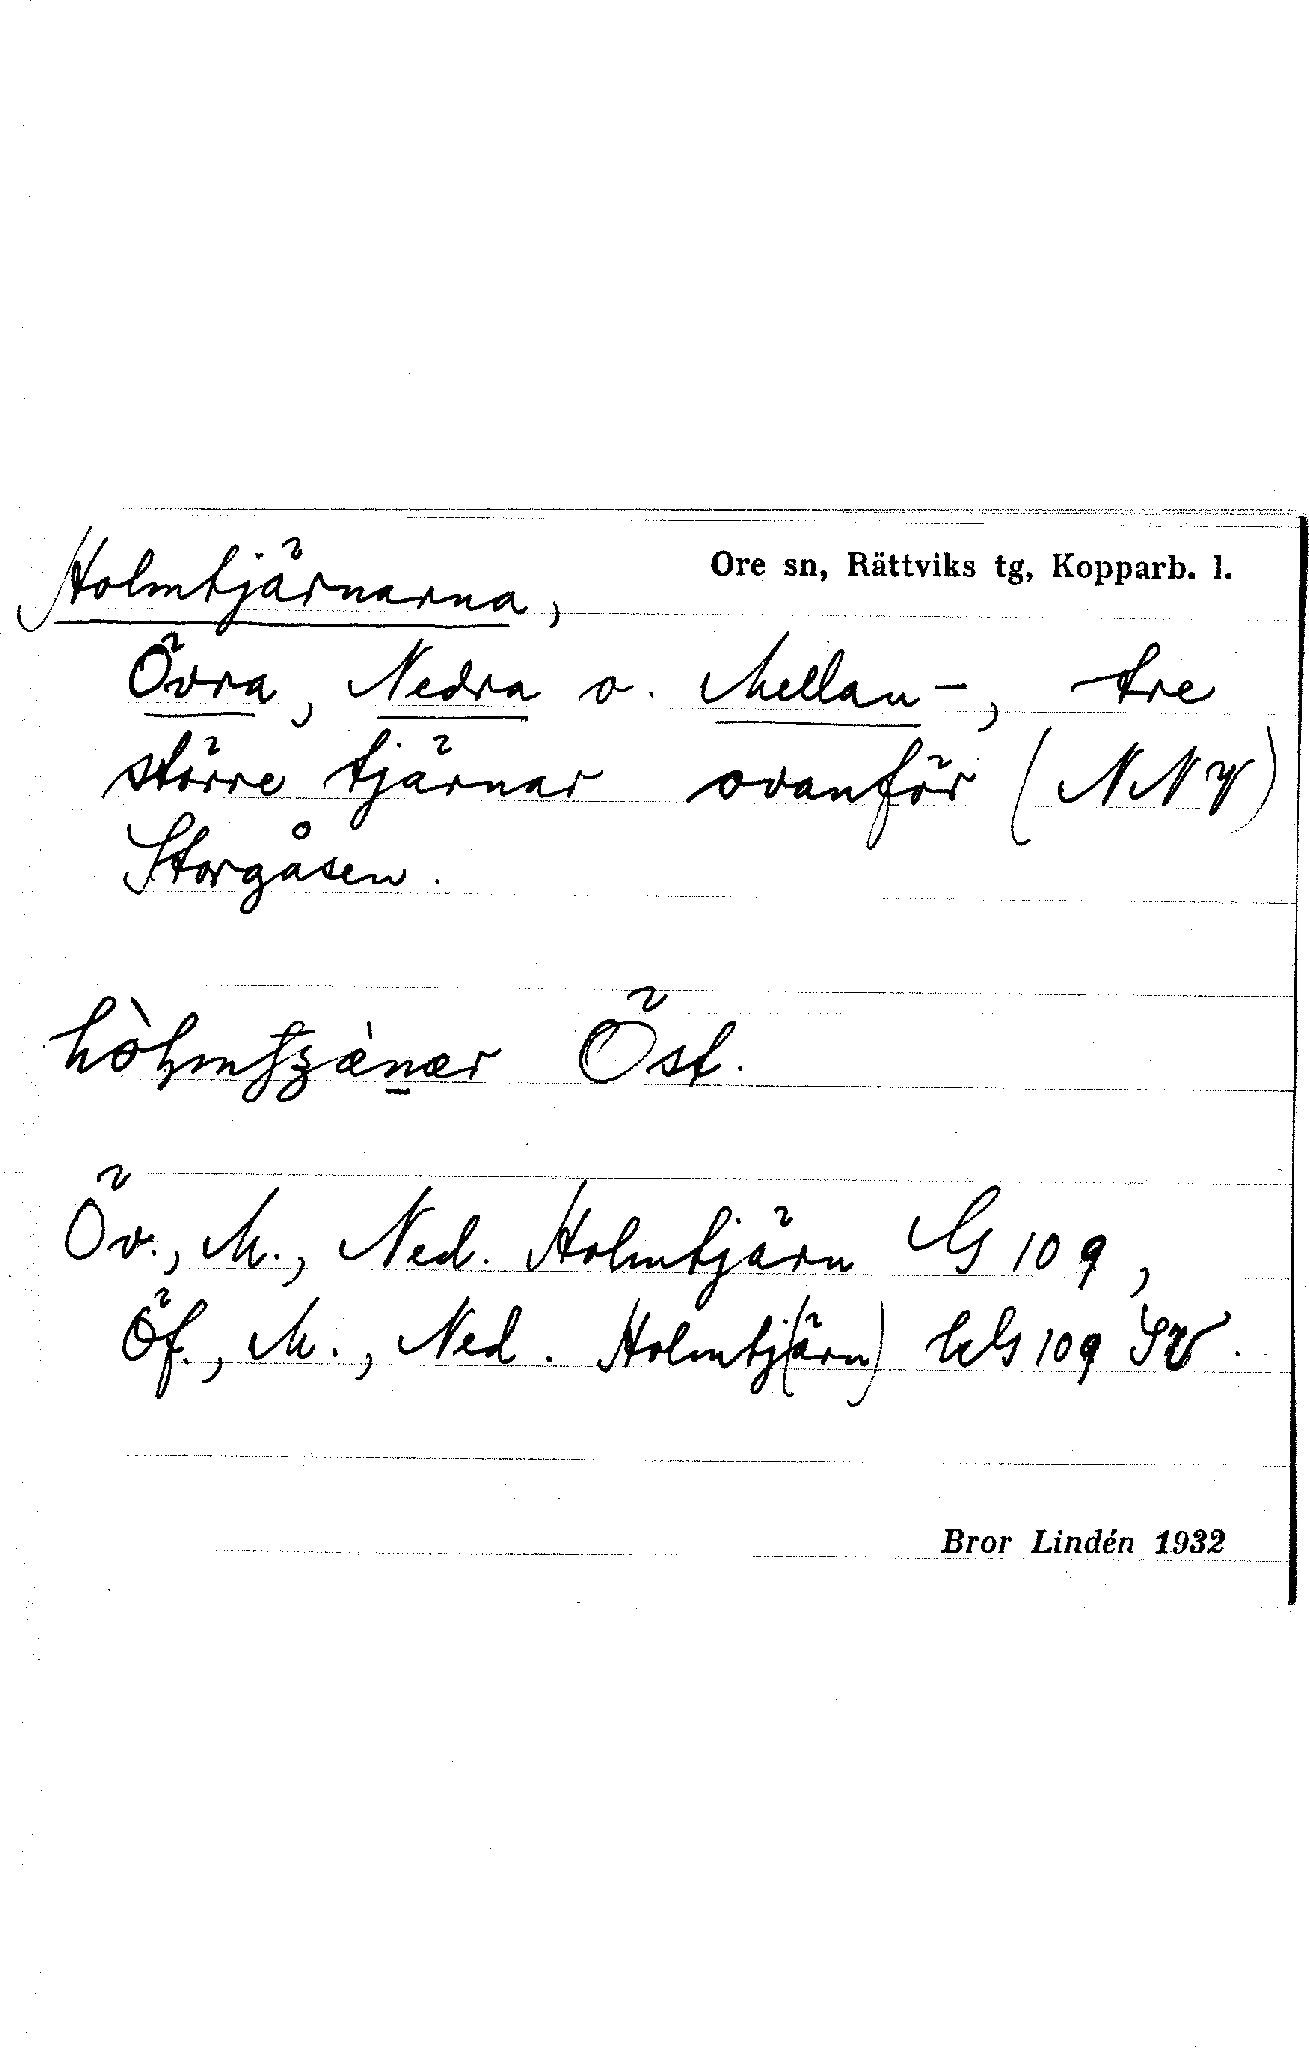 Ore sn, Rättviks tg, Kopparb. l.
Holmtjärnarna,
Övra, Nedra o. Mellan-, tre
större tjärnar ovanför (NNV)
Storgåsen.
Öst.
Öv., M., Ned. Holmtjärn G 109,
Öf., M., Ned. Holmtj(ärn) 109
Bror Lindén 1932